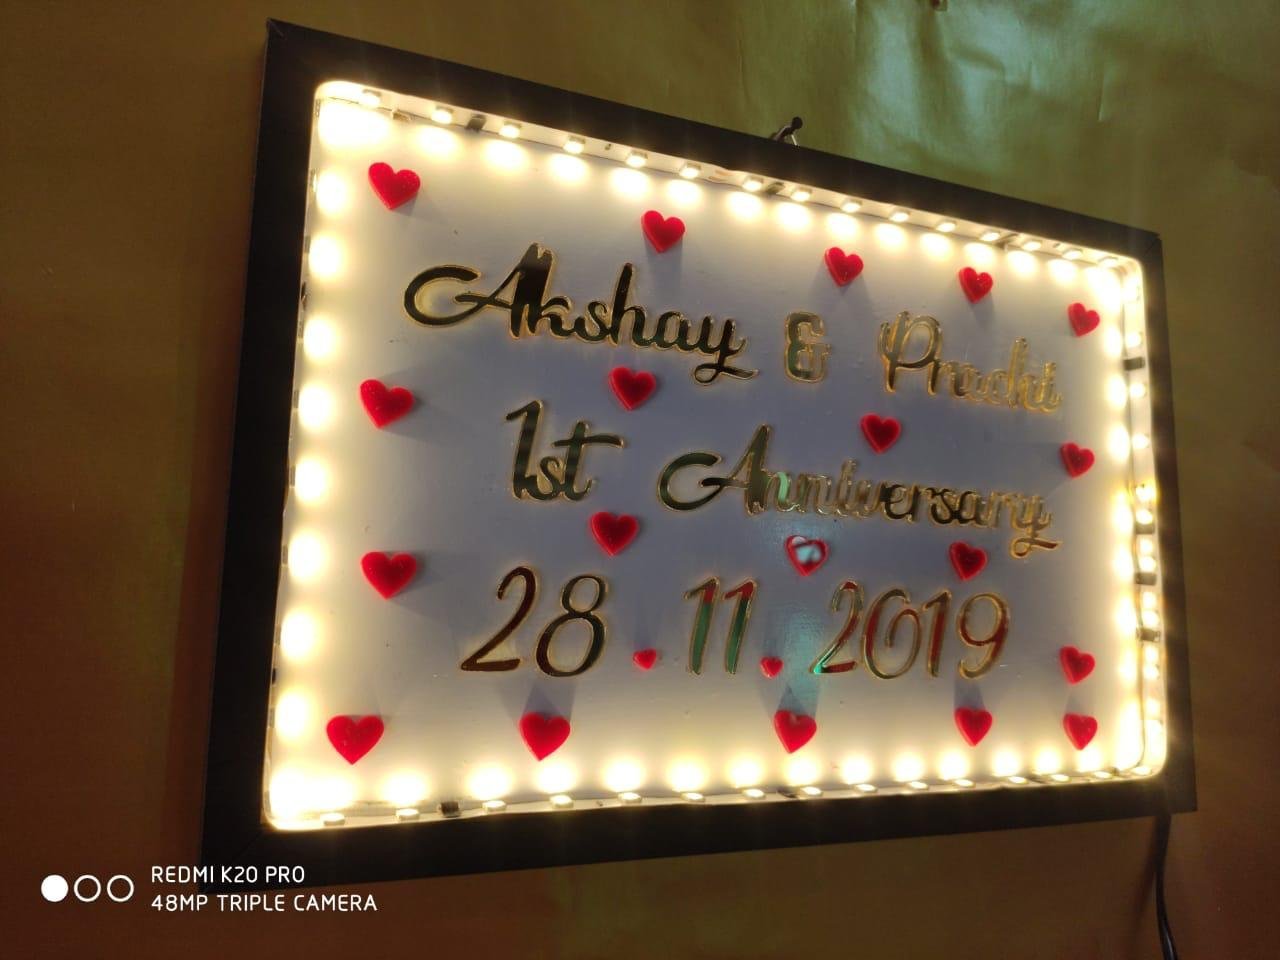 Akshay & Prachi
1st Anniversary
28.11.2019
REDMI K20 PRO
48MP TRIPLE CAMERA